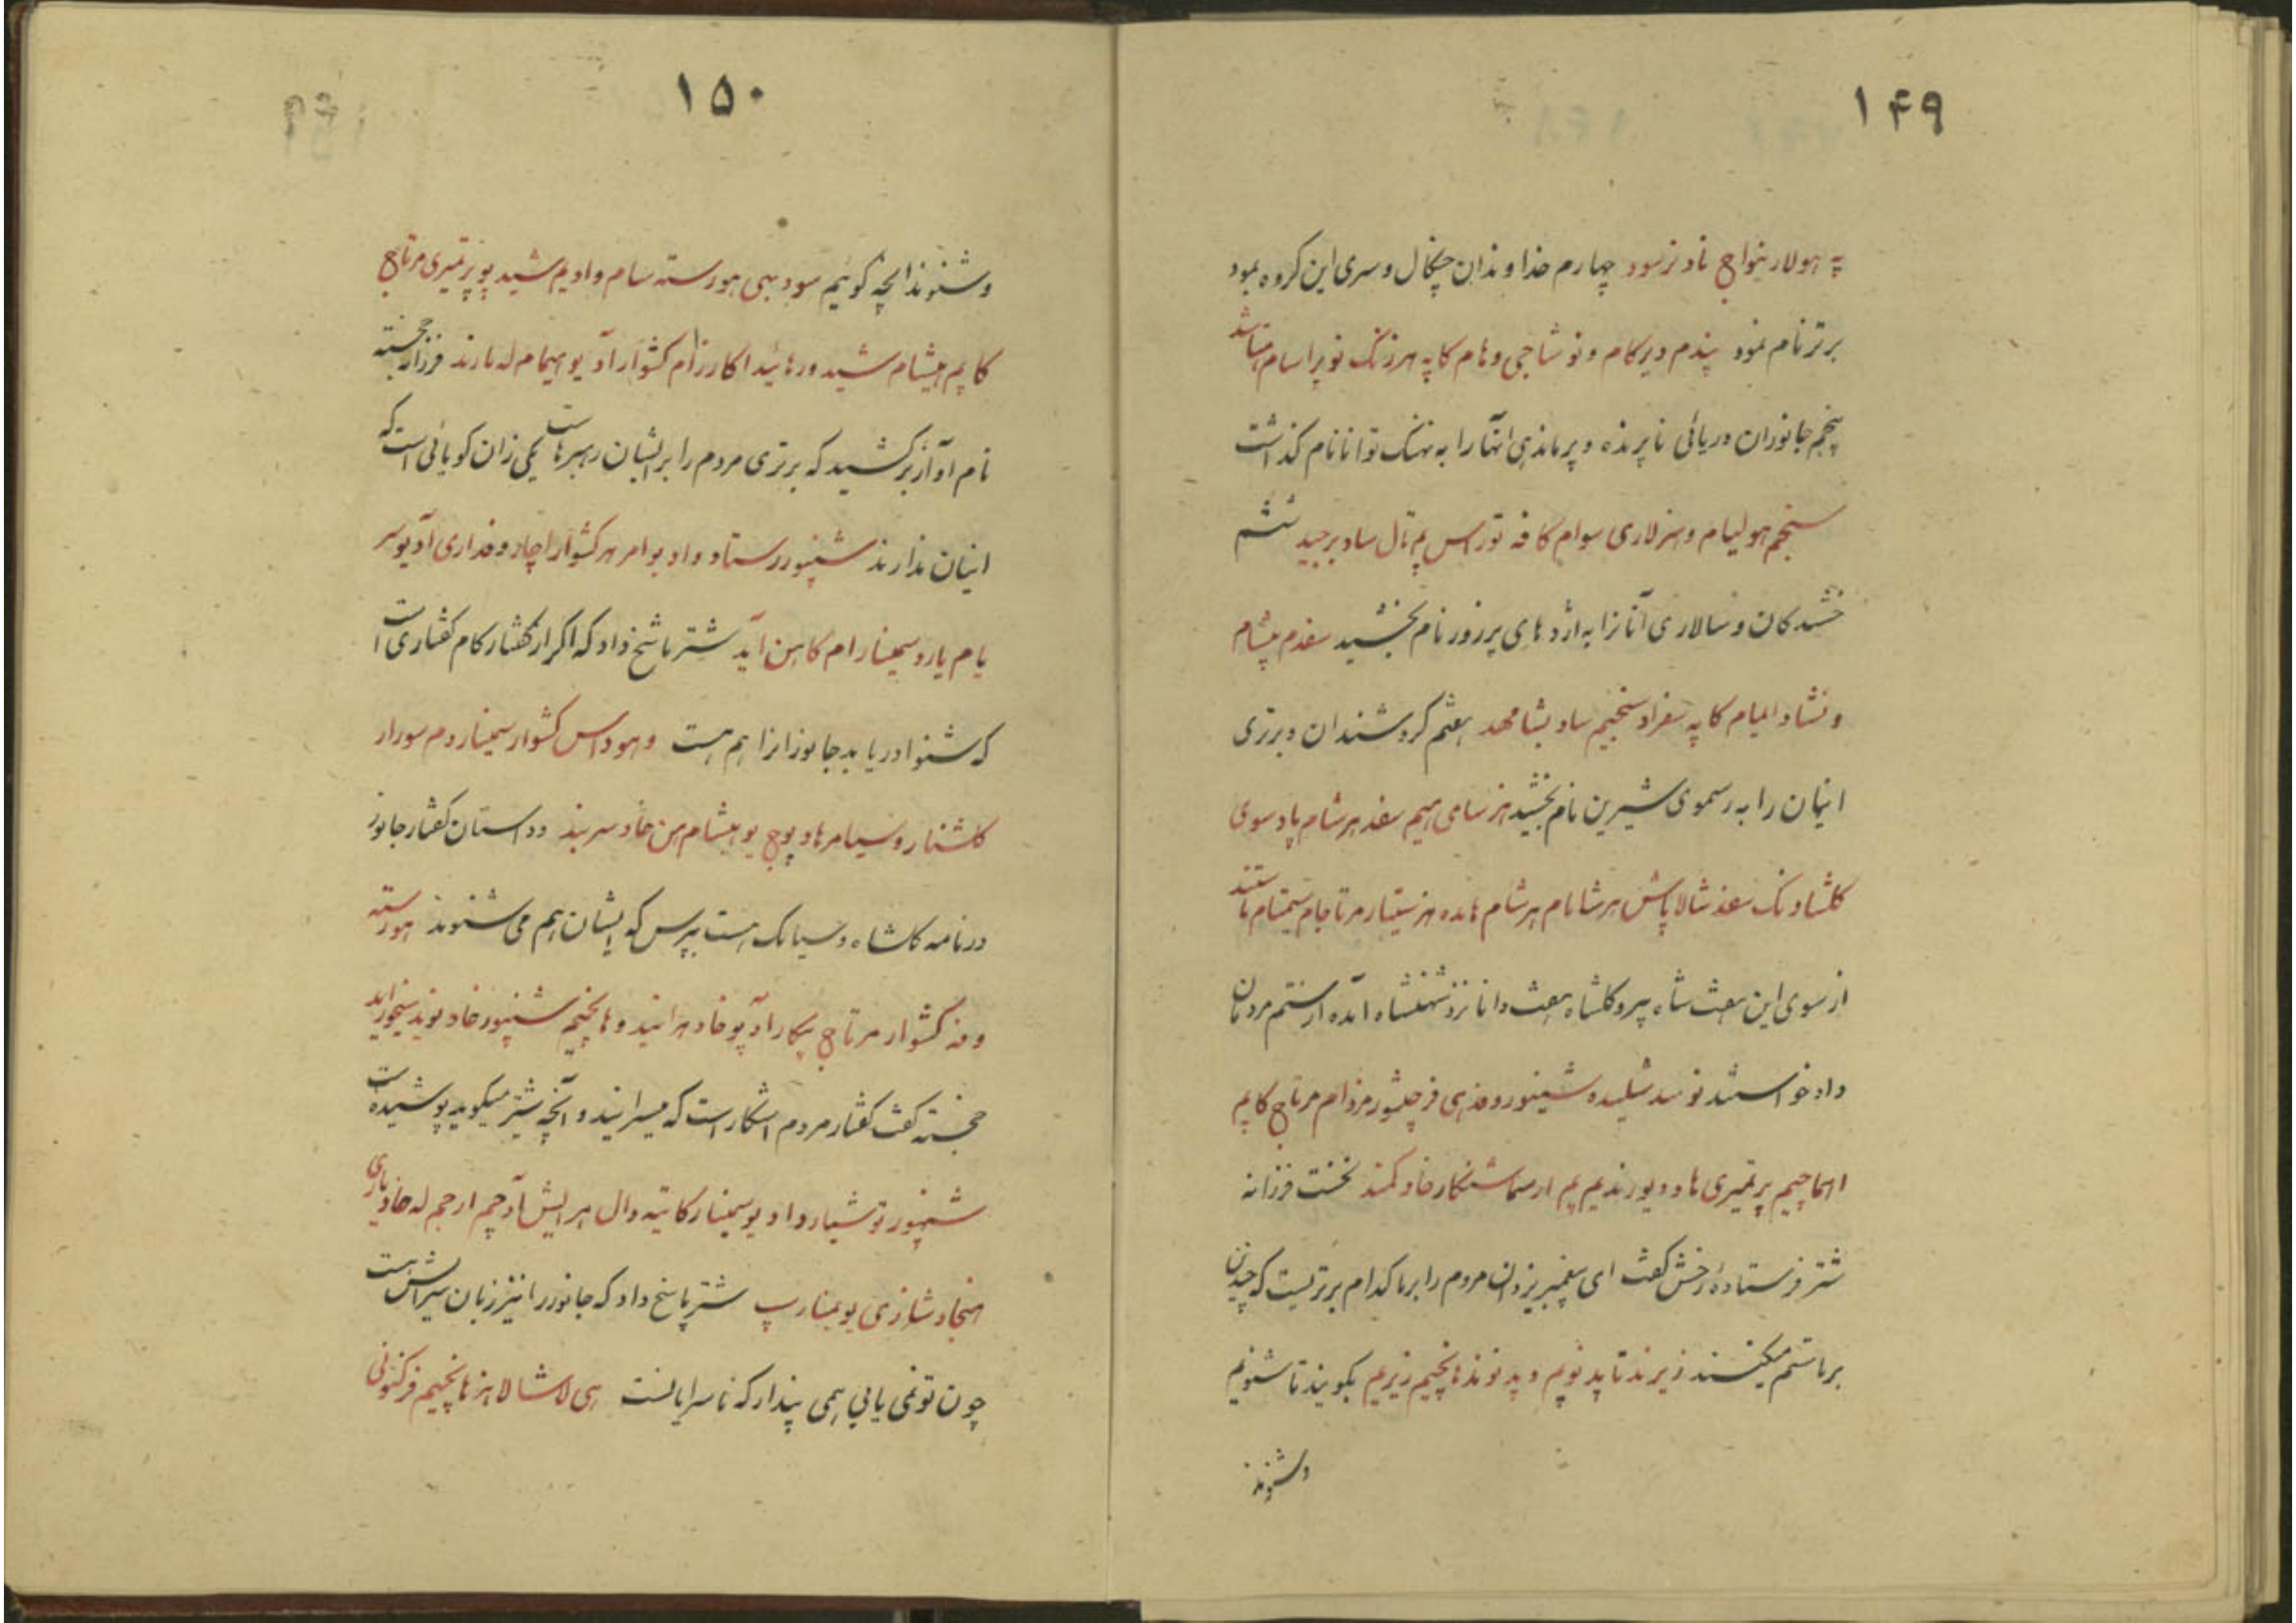 ۱۴۹
په هولار ینواج ناد نرسود چهارم خداوندان چنکال و سری این کروه بمود
برتر نام نمود پندم دیرکام و نوشاجی و هام کا په هرزنک نوپراسام
پنجم جانوران دریائی ناپرنده و پرماندهی انها را به نهنک توانا نام کذاشت
سنجم هولیام و هنرلاری سوام کا فه توراس پم تال ساد برجید ششم
خشندکان و سالاری آنانرا به اژدهای پرزور نام بخشید سفدم پیشام
و نشاد الیام کا په سفراد سنجیم ساد بشامهد هفتم کروشندان و برتری
اینان را به رسموی شیرین نام بخشید هنرسامی هیم سفد هرشام پاد سوی
کلشاد نک سفد شالا پاش هرشا نام هرشام هاده هنر ستیار مرتاجام سیمتام
از سوی این هفت شاه پیرو کلشاه هفت دانا نزد شهنشاه آمده از ستم مردمان
داد خواستند نوسد شلیده شیپور و فذهی فرجلیشور مزدام مرتاج کا پم
اهماچیم پرتمیری هاد و یورندیم پم ارسماشنکار خاد کمند نخست فرزانه
شتر فرستاده رخش کفت ای پیغمبر یزدان مردم را بر ما کدام برتریست که چندان
بر ما ستم میکنند زیرند تا پد نویم و پد نوند هانچیم زیریم بکویند تا شنویم
و شنوند
۱۵۰
و شنوند انچه کوئیم سود بهی هورسته سام وادیم شید پو پرتمیری مرتاج
کا پم هیشام شید ورهائیدا کارزام کشوارآد یو اهیمام له نارند فرزانه خجسته
نام آواز برکشید که برتری مردم را بر ایشان رهبرهاست یکی زان کویائی است که
اینان ندارند شنپور رستاد واد یوامر هرکشوار اچاز و فداری آد یو سر
یام یارد سیمنار ام کا هن آید شتر پاسخ داد که اکر از کفتار کام کفتاری است
که شنوا دریابد جانوزانرا هم هست و هوداس کشوار سیمنار دم سورار
کاشنار و سیامر هاد پوچ یو هیشام هن خاد سربند و داستان کفتار جانور
در نامه کلشاه و سیامک هست بپرس که ایشان هم می شنوند هورسته
و فه کشوار مرتاج پیکار آد پو خاد هرانید و هانچیم شنپور خاد نوید
خجسته کفت کفتار مردم اشکار است که میسرایند و آنچه شتر میکوید پوشیده است
شنپور توشیار واد یو سیمنار کا تیه دال هرایش آدچم ارجم له خاد
هنجاد شازی یو یمنارپ شتر پاسخ داد که جانور را نیز زبان سرایش است
چون تو نمی یابی همی پندار که ناسرایاست هی لاشا لا هز هانچیم فرکنونی